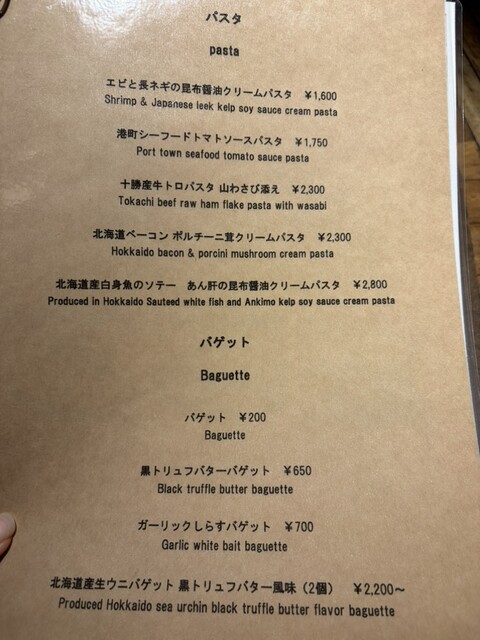 パスタ
pasta
エビと長ネギの昆布醤油クリームパスタ ¥1,600
Shrimp & Japanese leek kelp soy sauce cream pasta
港町シーフードトマトソースパスタ ¥1,750
Port town seafood tomato sauce pasta
十勝産牛トロパスタ 山わさび添え ¥2,300
Tokachi beef raw ham flake pasta with wasabi
北海道ベーコン ポルチーニ茸クリームパスタ ¥2,300
Hokkaido bacon & porcini mushroom cream pasta
北海道産白身魚のソテー あん肝の昆布醤油クリームパスタ ¥2,800
Produced in Hokkaido Sauteed white fish and Ankimo kelp soy sauce cream pasta
バゲット
Baguette
バゲット ¥200
Baguette
黒トリュフバターバゲット ¥650
Black truffle butter baguette
ガーリックしらすバゲット ¥700
Garlic white bait baguette
北海道産生ウニバゲット 黒トリュフバター風味（2個） ¥2,200～
Produced Hokkaido sea urchin black truffle butter flavor baguette